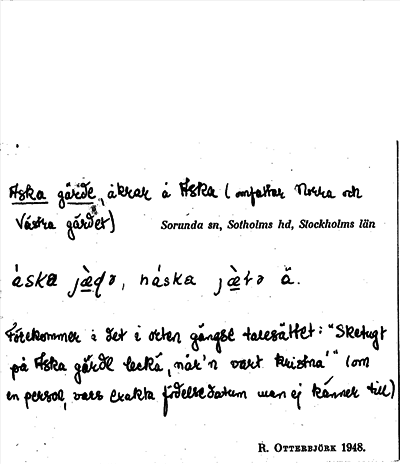 Äska gärde, åkrar å Äska (omfattar Norra och
Västra gärdet)
Sorunda sn, Sotholms hd, Stockholms län
áska jæ̀ḍə, náska jæ̀tə ä.
Förekommer i det i orten gängse talesättet: "Sketugt
på Äska gärde lecká, när'n vart kristna'" (om
en person, vars exakta födelsedatum man ej känner till)
R. OTTERBJÖRK 1948.